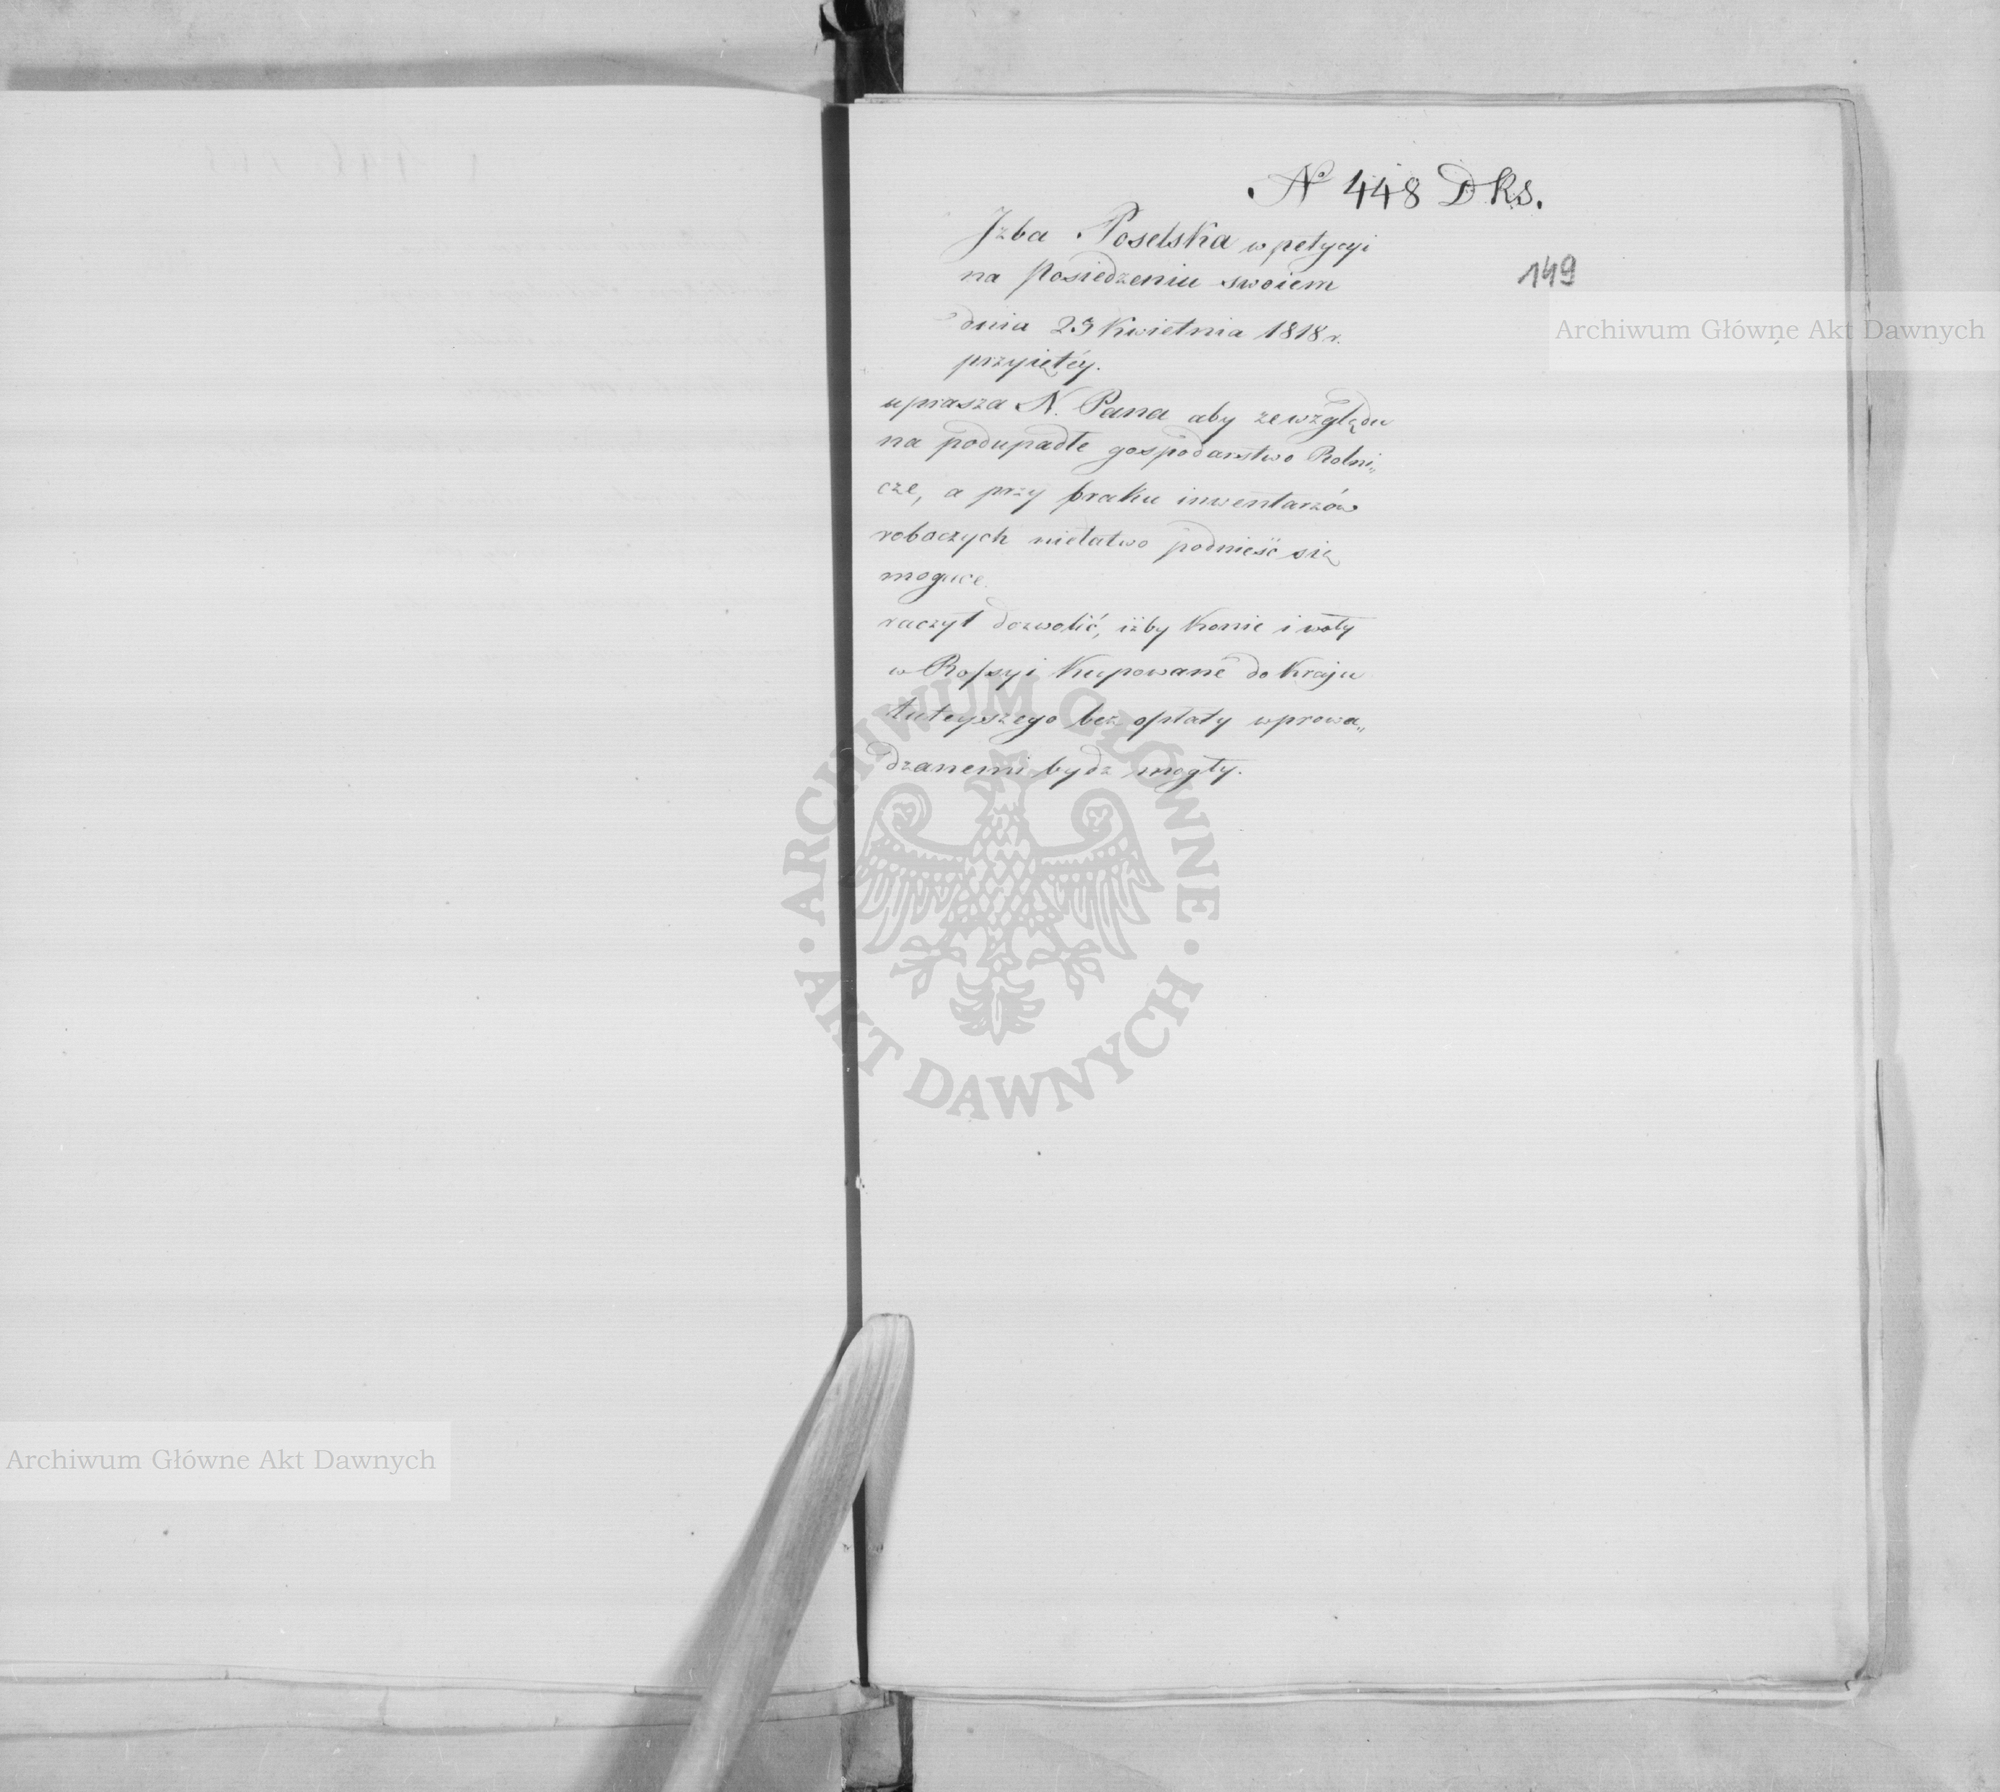 № 448 Dks.
Jzba Poselska w petycyi
na posiedzeniu swoiem
149
dnia 23 Kwietnia 1818 r.
przyiętéy.
uprasza N. Pana aby ze względu
na podupadłe gospodarstwo Rolni„
cze, a przy braku inwentarzów
roboczych niełatwo podnieść się
mogące.
raczył dozwolić, iżby Konie i woły
w Rossyi Kupowane do Kraju
tuteyszego bez opłaty wprowa„
dzanemi bydz mogły.
Archiwum Główne Akt Dawnych
ARCHIWUM GŁÓWNE · AKT DAWNYCH ·
Archiwum Główne Akt Dawnych